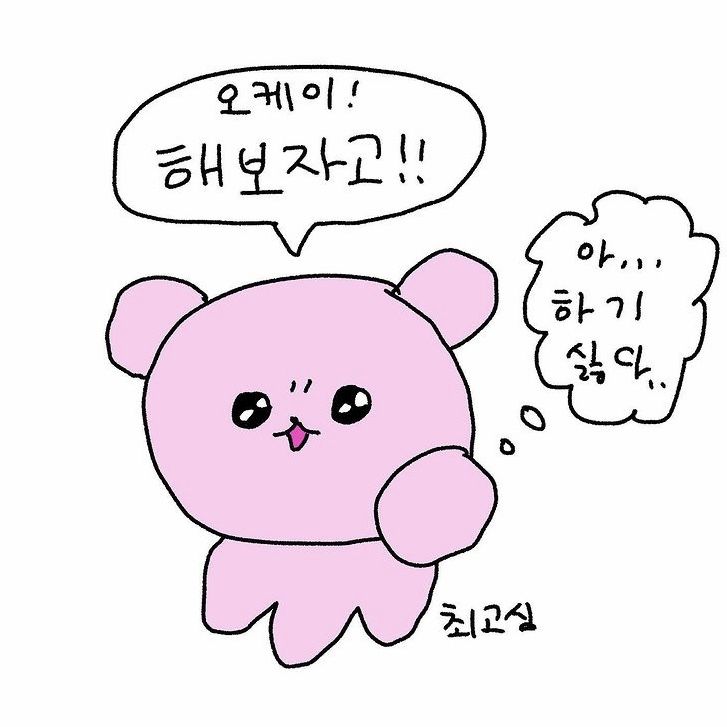 오케이!
해보자고!!
아...
하기
싫다..
최고심